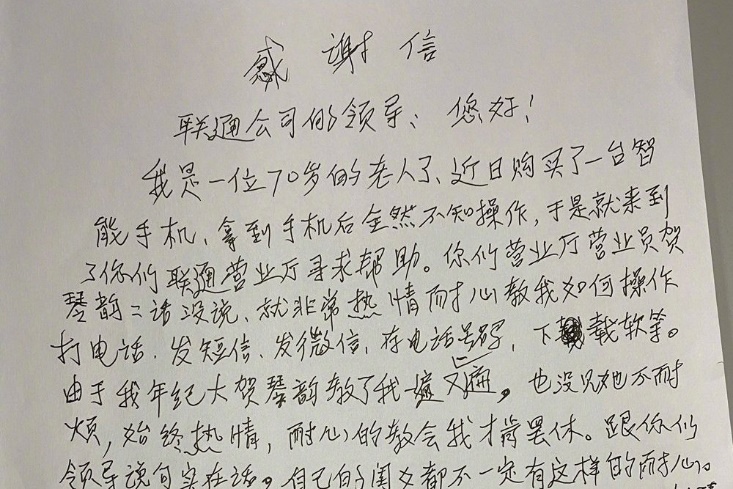 感谢信
联通公司的领导：您好！
我是一位70岁的老人了、近日购买了一台智
能手机、拿到手机后全然不知操作，于是就来到
了你们联通营业厅寻求帮助。你们营业厅营业员贺
琴韵二话没说、就非常热情耐心教我如何操作
打电话、发短信、发微信，存电话号码，下载软等。
由于我年纪大贺琴韵教了我一遍又遍，也没见她不耐
烦，始终热情，耐心的教会我才肯罢休。跟你们
领导说句实在话。自己的闺女都不一定有这样的耐心。